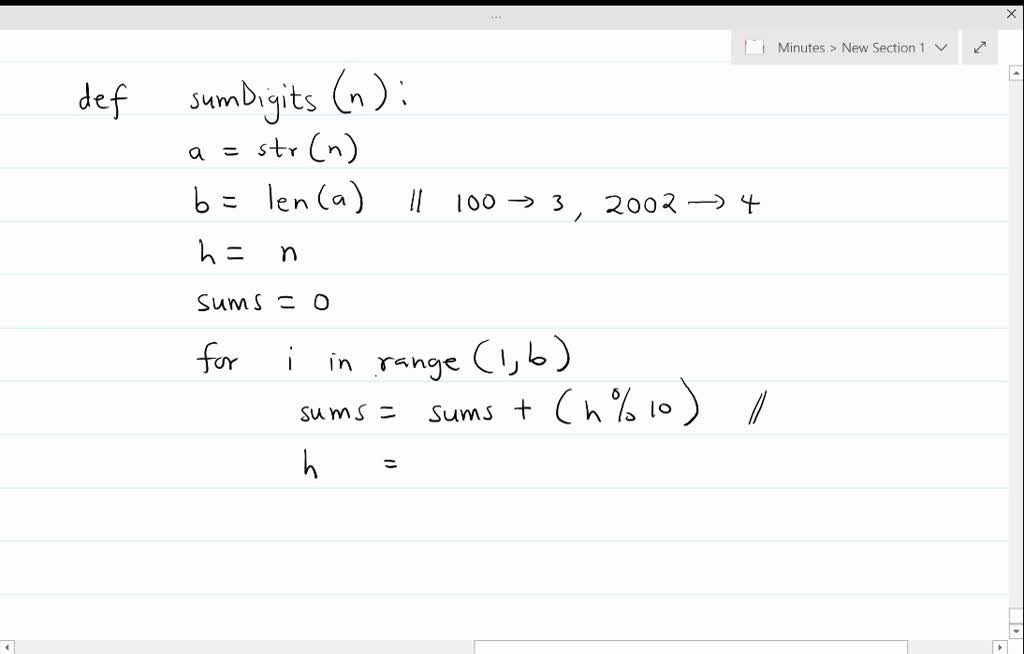 ...
Minutes > New Section 1
def sumDigits (n):
a = str(n)
b = len(a) // 100 → 3, 2002 → 4
h = n
sums = 0
for i in range (1,b)
sums = sums + (h % 10) //
h =